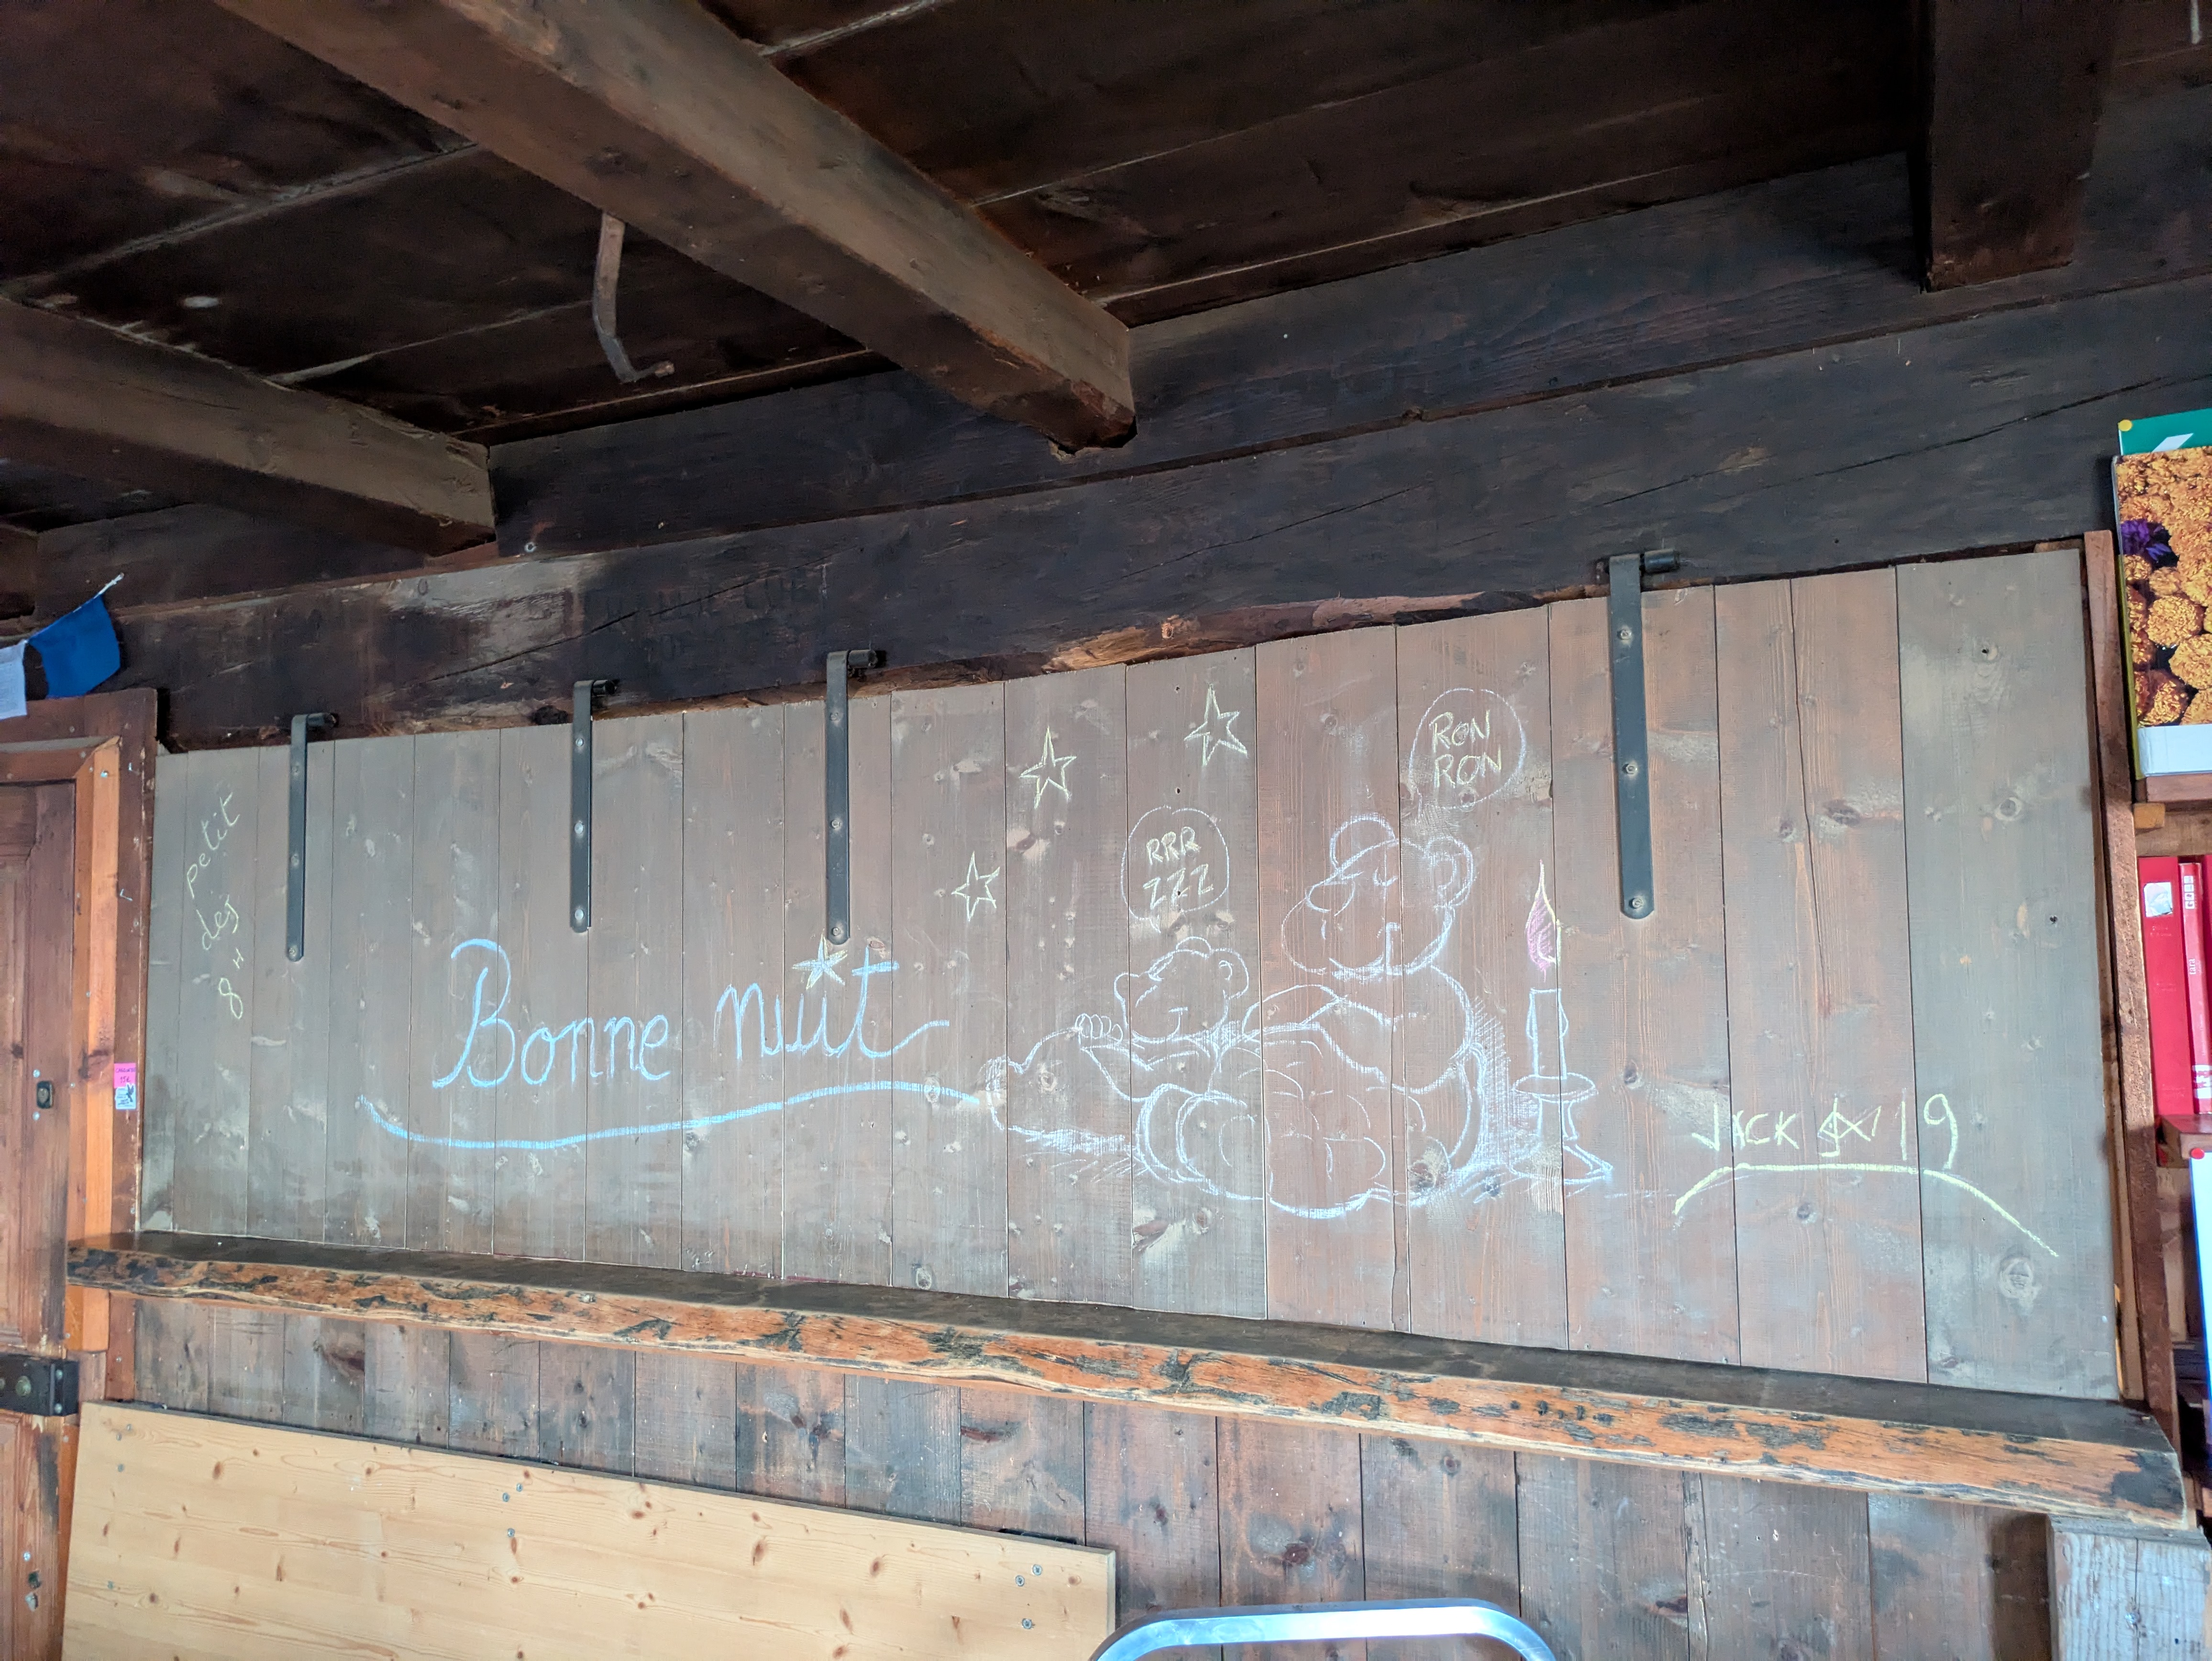 petit
déj
8 H
Bonne nuit
RRR
ZZZ
RON
RON
JACK 19